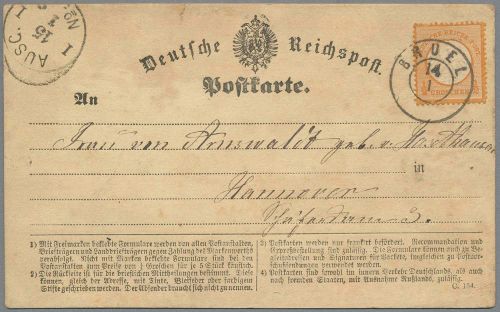 AUSG. N
15 1
I
Deutsche Reichspost.
Postkarte.
BRUEL
14
1
An
Frau von Arnswaldt geb. v. Haxthausen
in
Hannover
3.
1) Mit Freimarken beklebte Formulare werden von allen Postanstalten,
Briefträgern und Landbriefträgern gegen Zahlung des Markenwerths
verabfolgt. Nicht mit Marken beklebte Formulare sind bei den
Postanstalten zum Preise von ½ Groschen für je 5 Stück käuflich.
2) Die Rückseite ist für die brieflichen Mittheilungen bestimmt. Diese
können, gleich der Adresse, wie mit Tinte, Bleifeder oder farbigem
Stifte geschrieben werden. Der Absender braucht sich nicht zu nennen.
3) Postkarten werden nur frankirt befördert. Recommandation und
und Signaturen für
4) Postkarten sind sowohl im innern Verkehr Deutschlands, als auch
nach fremden Staaten, mit Ausnahme Rußlands, zulässig.
C. 154.